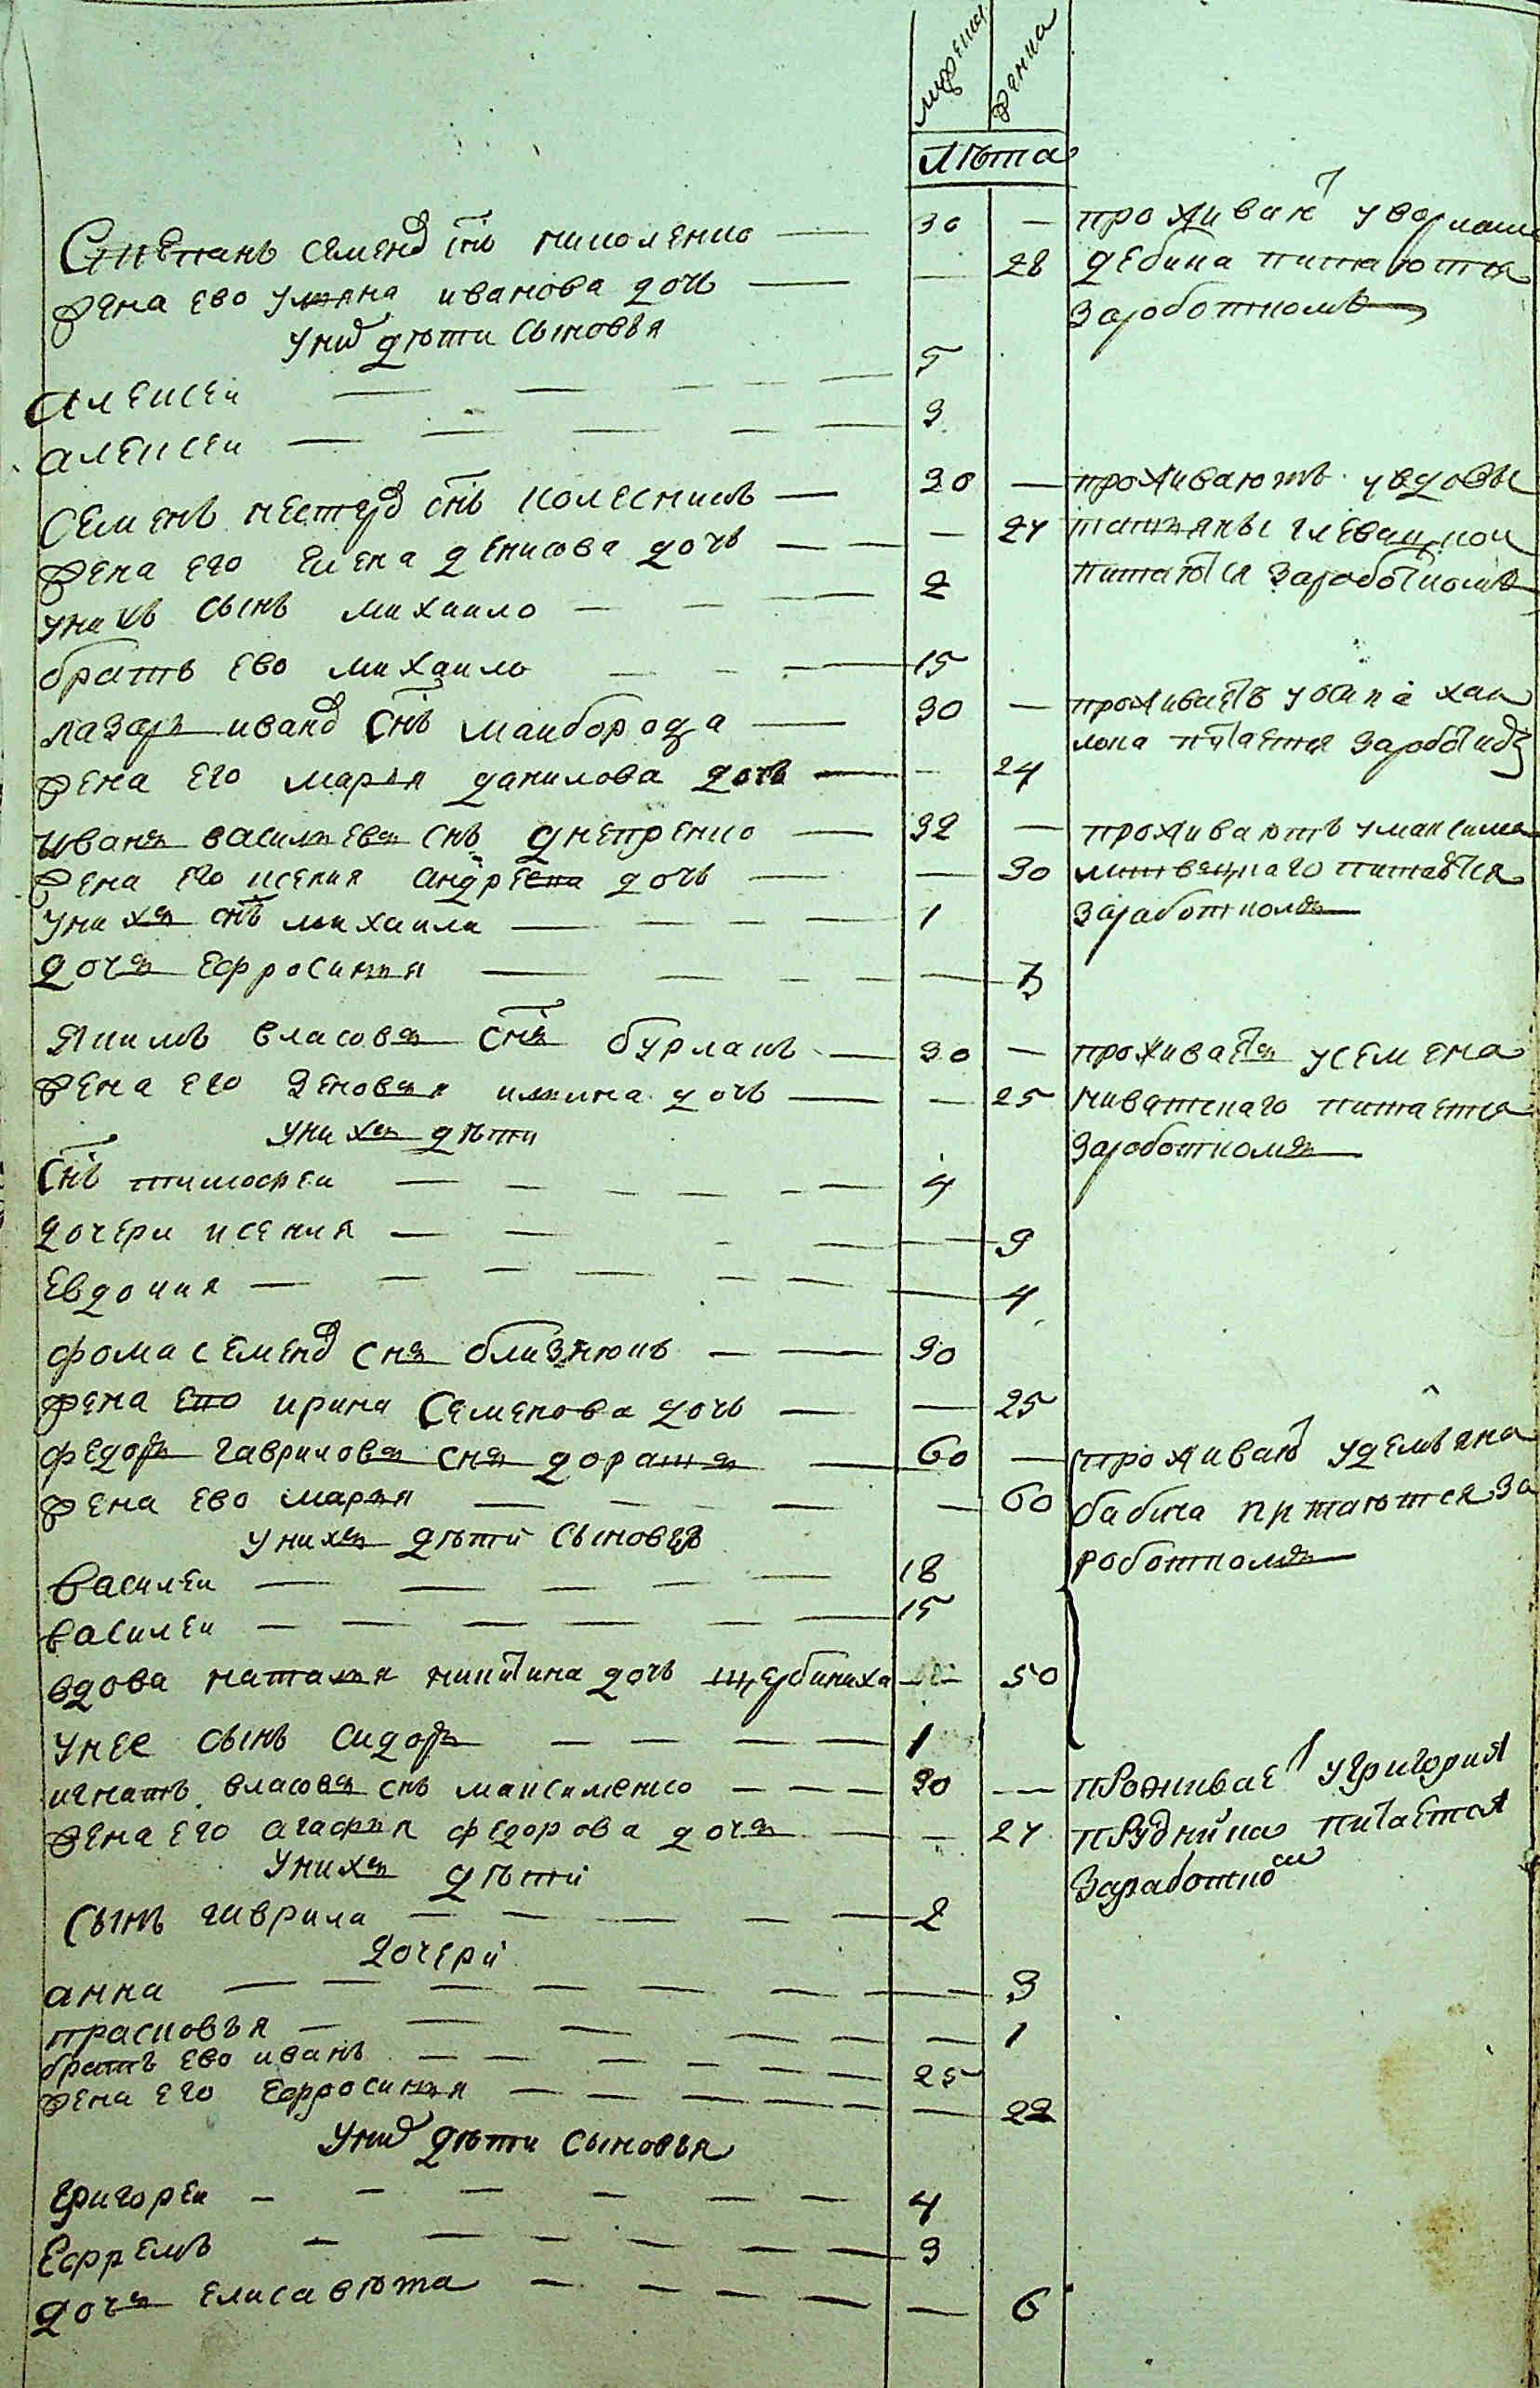 мужеска женска
лѣта
Степанъ семенов снъ николенко — 30 — проживают у
жена ево уляна иванова дочь — — 28 питаются
заработкомъ
у них дѣти сыновья
алексеи — 5
алексеи — 3
семенъ нестеров снъ колесникъ — 30 — проживаютъ у вдовы
жена его елена денисова дочь — — 24 татьяны
у нихъ сынъ михаило — 2 питаются заработкомъ
братъ ево михаило — 15
лазарь иванов снъ маиборода — 30 — проживаетъ у
жена его марья данилова дочь — — 24 питаетця
иванъ васильевъ снъ днепренко — 32 — проживаютъ у максима
жена его ксения андреева дочь — — 30 литвецкаго питаются
у нихъ снъ михаила — 1 заработкомъ
дочь ефросинья — — 3
якимъ власовъ снъ бурлакъ — 30 — проживаетъ у семена
жена его зеновья дочь — — 25 питаетця
у нихъ дѣти
заработкомъ
снъ тимофеи — 4
дочери ксения — — 9
евдокия — — 4
фома семенов снъ близнюкъ — 30
жена его ирина семенова дочь — — 25
федоръ гавриловъ снъ дорашъ — 60 — проживают у демьяна
жена ево марья — — 60 бабича питаются за
у нихъ дѣти сыновья
василеи — 18 роботкомъ
василеи — 15
вдова наталья никитина дочь щербиниха — — 50
у нее сынъ сидоръ — 1
игнатъ власовъ снъ максименко — 30 — проживает у григория
жена его агафья федорова дочь — — 24 прудника питается
у нихъ дѣти
заработком
сынъ гаврила — 2
дочери
анна — — 3
прасковья — — 1
братъ ево иванъ — 25
жена его ефросинья — — 22
у них дѣти сыновья
григореи — 4
ефремъ — 3
дочь елисавѣта — — 6